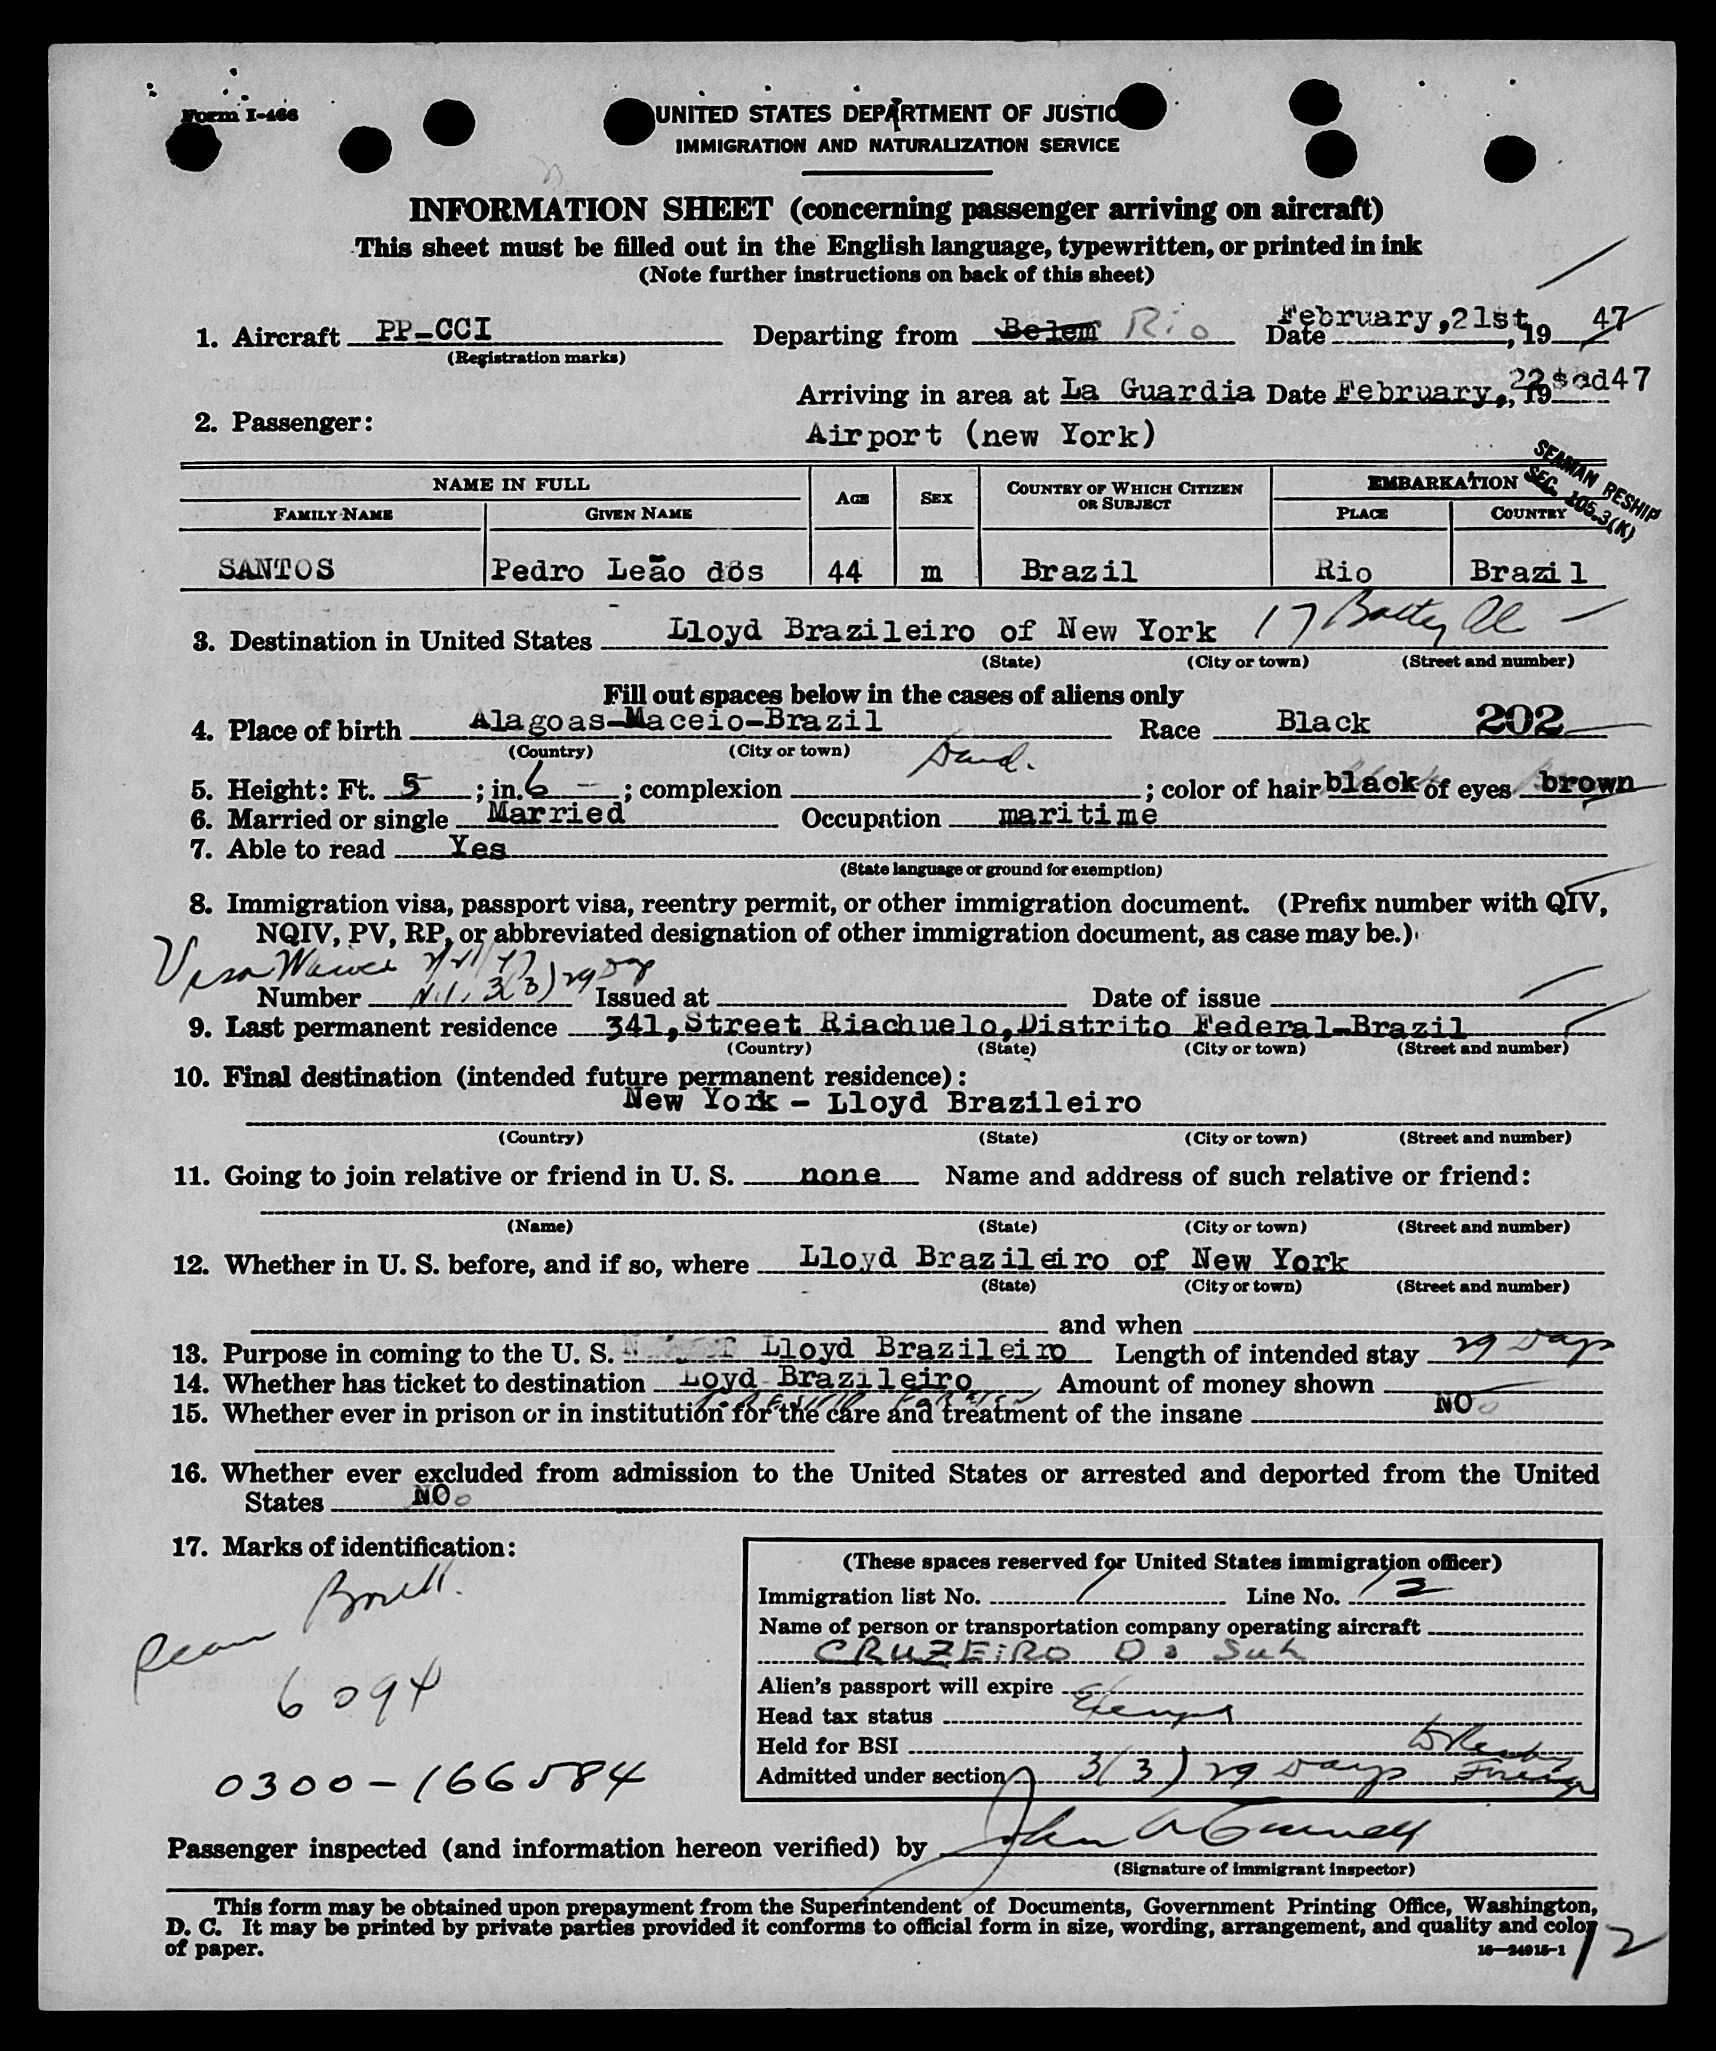 Form I-466
UNITED STATES DEPARTMENT OF JUSTIC
IMMIGRATION AND NATURALIZATION SERVICE
INFORMATION SHEET (concerning passenger arriving on aircraft)
This sheet must be filled out in the English language, typewritten, or printed in ink
(Note further instructions on back of this sheet)
1. Aircraft PP-CCI Departing from Belem Rio Date February,21st, 19 47
(Registration marks)
Arriving in area at La Guardia Date February, 22 , 19 47
2. Passenger: Airport (new York)
SEAMAN RESHIP
SEC. 105.3(K)
NAME IN FULL AGE SEX COUNTRY OF WHICH CITIZEN OR SUBJECT EMBARKATION
FAMILY NAME GIVEN NAME PLACE COUNTRY
SANTOS Pedro Leão dos 44 m Brazil Rio Brazil
3. Destination in United States Lloyd Brazileiro of New York 17 Battery Pl
(State) (City or town) (Street and number)
Fill out spaces below in the cases of aliens only
4. Place of birth Alagoas-Maceio-Brazil Race Black 202
(Country) (City or town)
5. Height: Ft. 5 ; in. 6 ; complexion ; color of hair black of eyes brown
6. Married or single Married Occupation maritime
7. Able to read Yes
(State language or ground for exemption)
8. Immigration visa, passport visa, reentry permit, or other immigration document. (Prefix number with QIV,
NQIV, PV, RP, or abbreviated designation of other immigration document, as case may be.)
Visa 3(3) 29 Day
Number Issued at Date of issue
9. Last permanent residence 341,Street Riachuelo,Distrito Federal-Brazil
(Country) (State) (City or town) (Street and number)
10. Final destination (intended future permanent residence):
New York - Lloyd Brazileiro
(Country) (State) (City or town) (Street and number)
11. Going to join relative or friend in U. S. none Name and address of such relative or friend:
(Name) (State) (City or town) (Street and number)
12. Whether in U. S. before, and if so, where Lloyd Brazileiro of New York
(State) (City or town) (Street and number)
and when
13. Purpose in coming to the U. S. Lloyd Brazileiro Length of intended stay 29 Days
14. Whether has ticket to destination Loyd Brazileiro Amount of money shown
15. Whether ever in prison or in institution for the care and treatment of the insane NO
16. Whether ever excluded from admission to the United States or arrested and deported from the United
States NO
17. Marks of identification:
6094
0300-166584
(These spaces reserved for United States immigration officer)
Immigration list No. 1 Line No. 12
Name of person or transportation company operating aircraft
CRUZEIRO Do Sul
Alien's passport will expire
Head tax status Exempt
Held for BSI
Admitted under section 3(3) 29 Days Foreign
Passenger inspected (and information hereon verified) by
(Signature of immigrant inspector)
This form may be obtained upon prepayment from the Superintendent of Documents, Government Printing Office, Washington,
D. C. It may be printed by private parties provided it conforms to official form in size, wording, arrangement, and quality and color
of paper.
16—24915-1
12